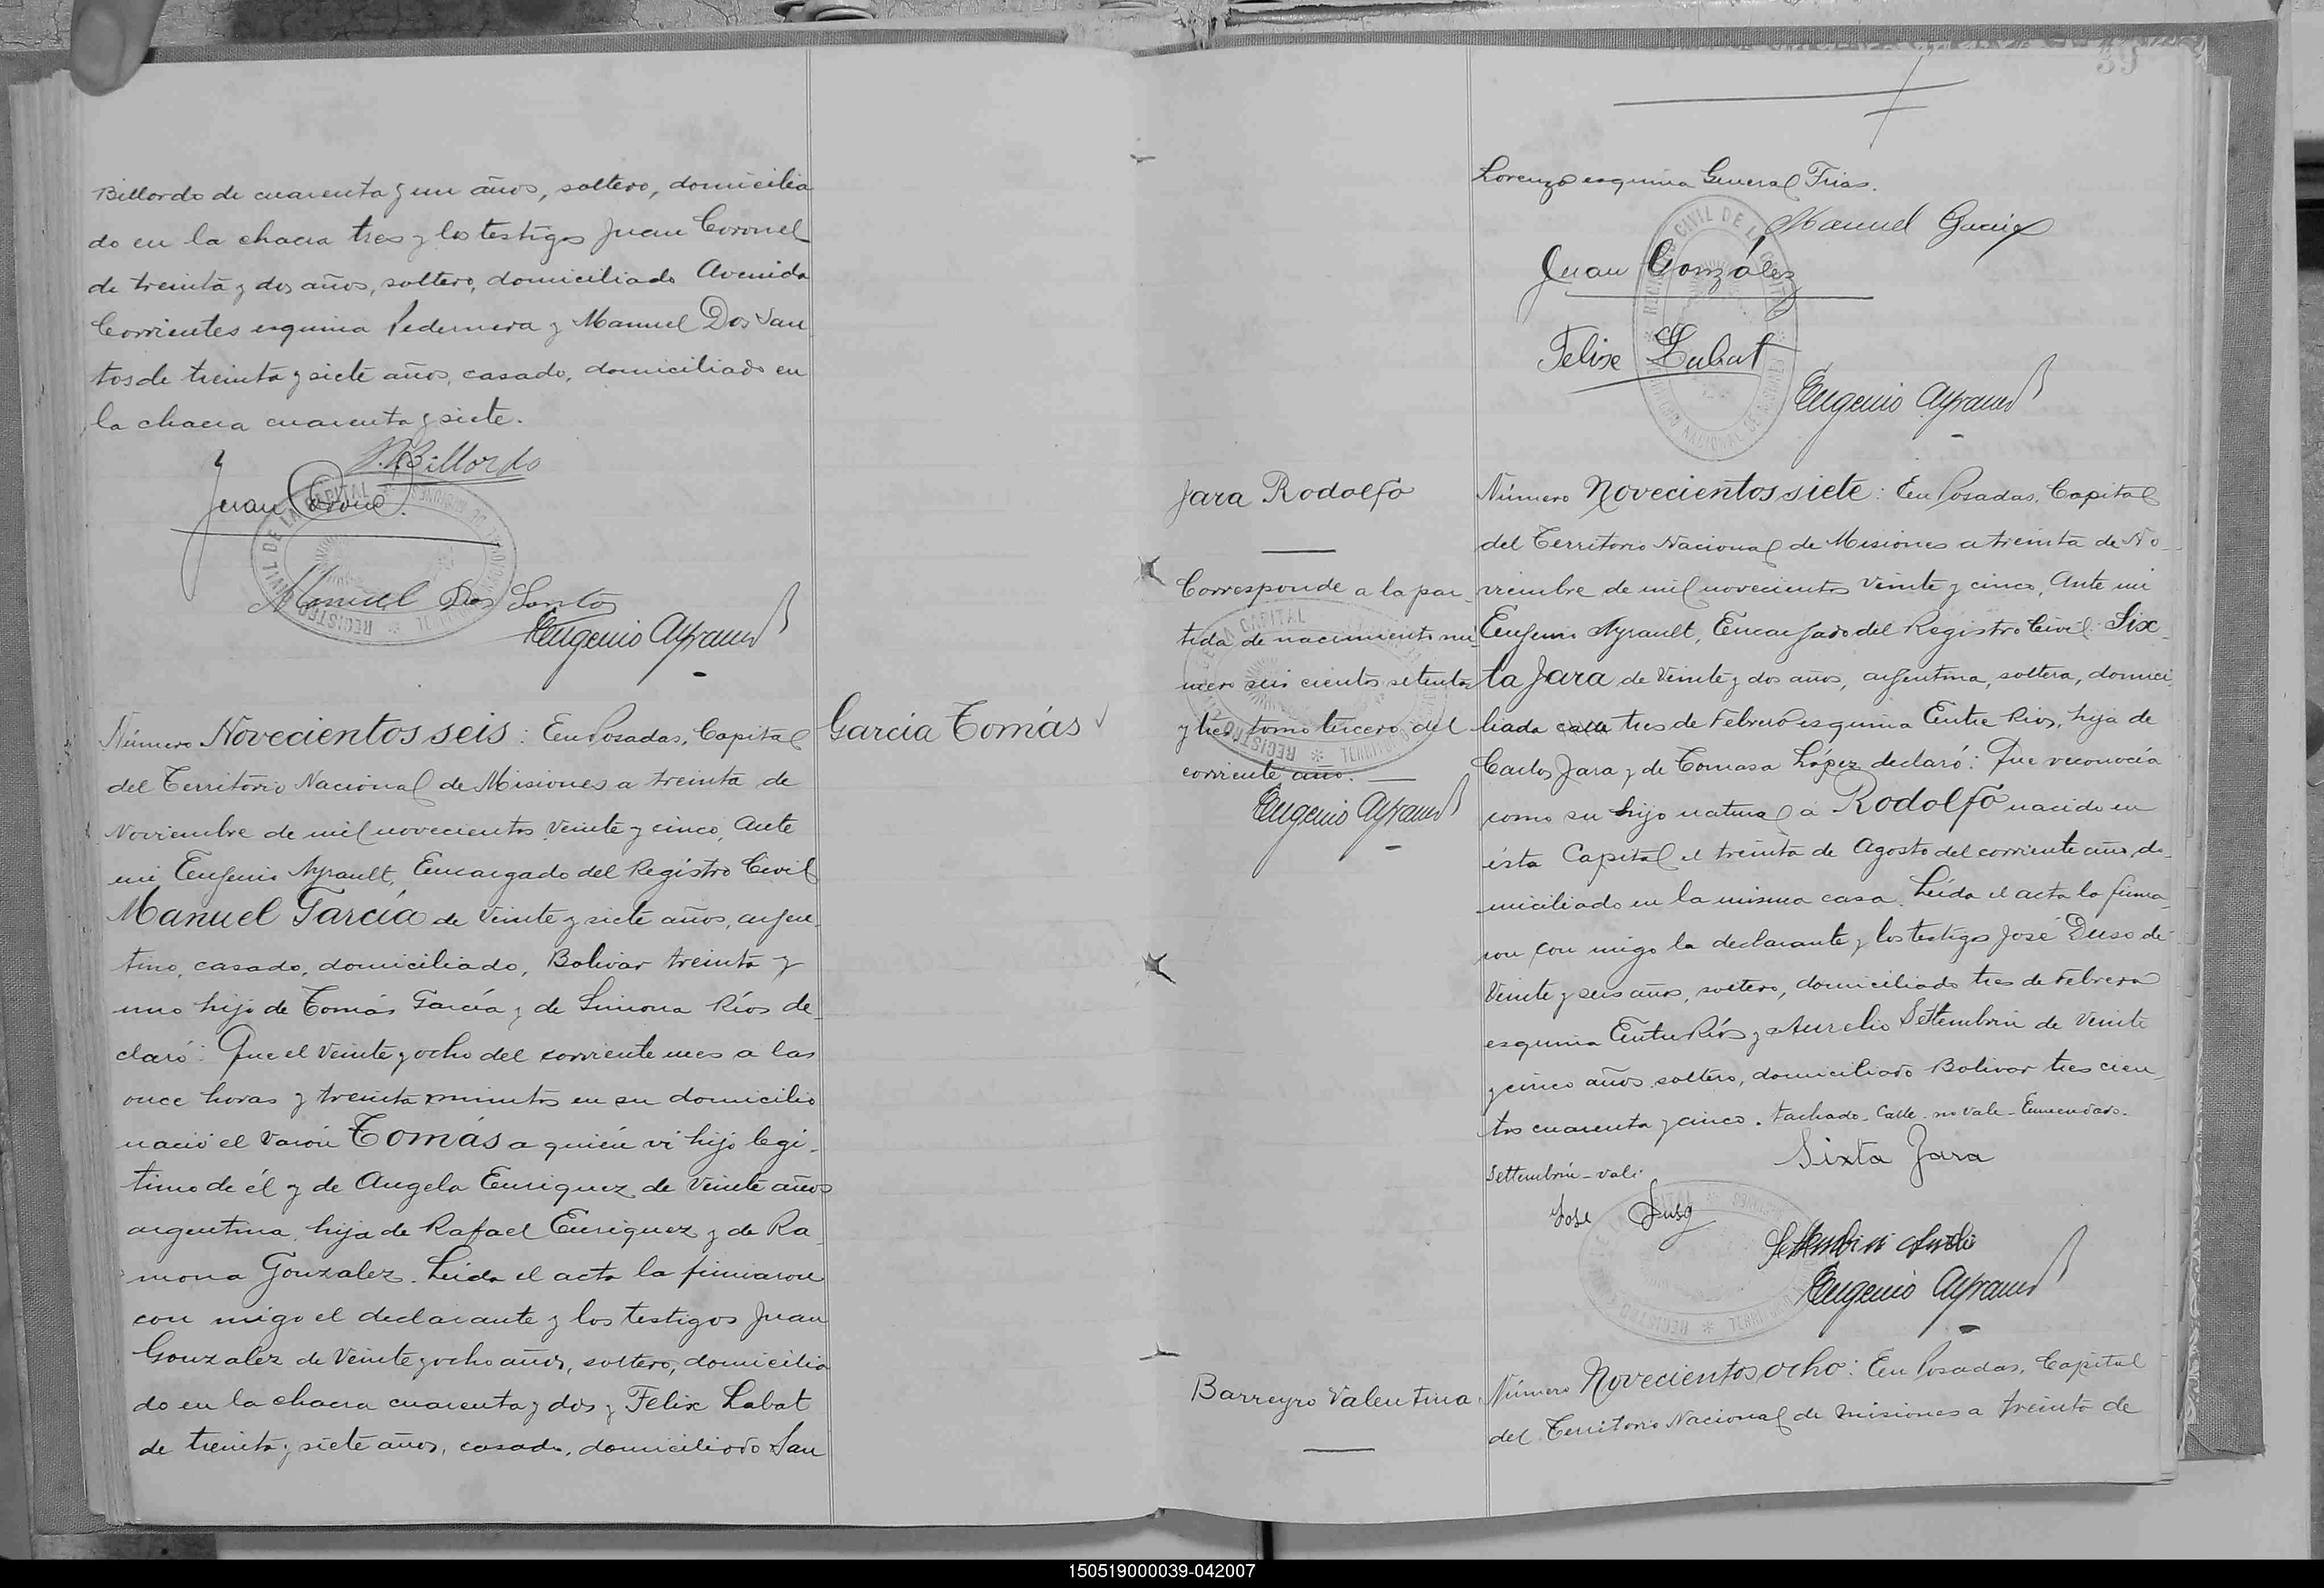 Billordo de cuarenta y un años, soltero, domicilia
do en la chacra tres y los testigos Juan Coronel
de treinta y dos años, soltero, domiciliado Avenida
Corrientes esquina Pedernera y Manuel Dos San
tos de treinta y siete años, casado, domiciliado en
la chacra cuarenta y siete.
Billordo
Juan Coronel
Manuel Dos Santos
Eugenio Ayrault
Número Novecientos seis: En Posadas, Capital
del Territorio Nacional de Misiones a treinta de
Noviembre de mil novecientos veinte y cinco, Ante
mi Eugenio Ayrault, Encargado del Registro Civil
Manuel García de veinte y siete años, argen
tino, casado, domiciliado, Bolivar treinta y
uno hijo de Tomás García y de Simona Ríos de
claró: Que el veinte y ocho del corriente mes a las
once horas y treinta minutos en su domicilio
nació el varón Tomás a quién vi hijo legi
timo de él y de Angela Enriquez de veinte años
argentina, hija de Rafael Enriquez y de Ra
mona Gonzalez. Leída el acta la firmaron
con migo el declarante y los testigos Juan
Gonzalez de veinte y ocho años, soltero, domicilia
do en la chacra cuarenta y dos y Felix Labat
de treinta y siete años, casado, domiciliado San
Garcia Tomás
39
Lorenzo esquina General Frias.
Manuel Garcia
Juan González
Felix Labat
Eugenio Ayrault
Jara Rodolfo
Corresponde a la par
tida de nacimiento nú
mero seis cientos setenta
y tres tomo tercero del
corriente año.
Eugenio Ayrault
Número Novecientos siete: En Posadas, Capital
del Territorio Nacional de Misiones a treinta de No
viembre de mil novecientos veinte y cinco, Ante mi
Eugenio Ayrault, Encargado del Registro Civil Six
ta Jara de veinte y dos años, argentina, soltera, domici
liada calle tres de Febrero esquina Entre Rios, hija de
Carlos Jara y de Tomasa López declaró: Que reconocía
como su hijo natural á Rodolfo nacido en
ésta Capital el treinta de Agosto del corriente año, do
miciliado en la misma casa. Leída el acta la firma
ron con migo la declarante y los testigos José Duso de
veinte y seis años, soltero, domiciliado tres de Febrero
esquina Entre Ríos y Aurelio Settembrini de veinte
y cinco años soltero, domiciliado Bolivar tres cien
tos cuarenta y cinco. Tachado - Calle - no vale - Enmendado -
Settembrini - vale
Sixta Jara
Jose Duso
Settembrini Aurelio
Eugenio Ayrault
Barreyro Valentina
Número Novecientos ocho: En Posadas, Capital
del Territorio Nacional de Misiones a treinta de
150519000039-042007